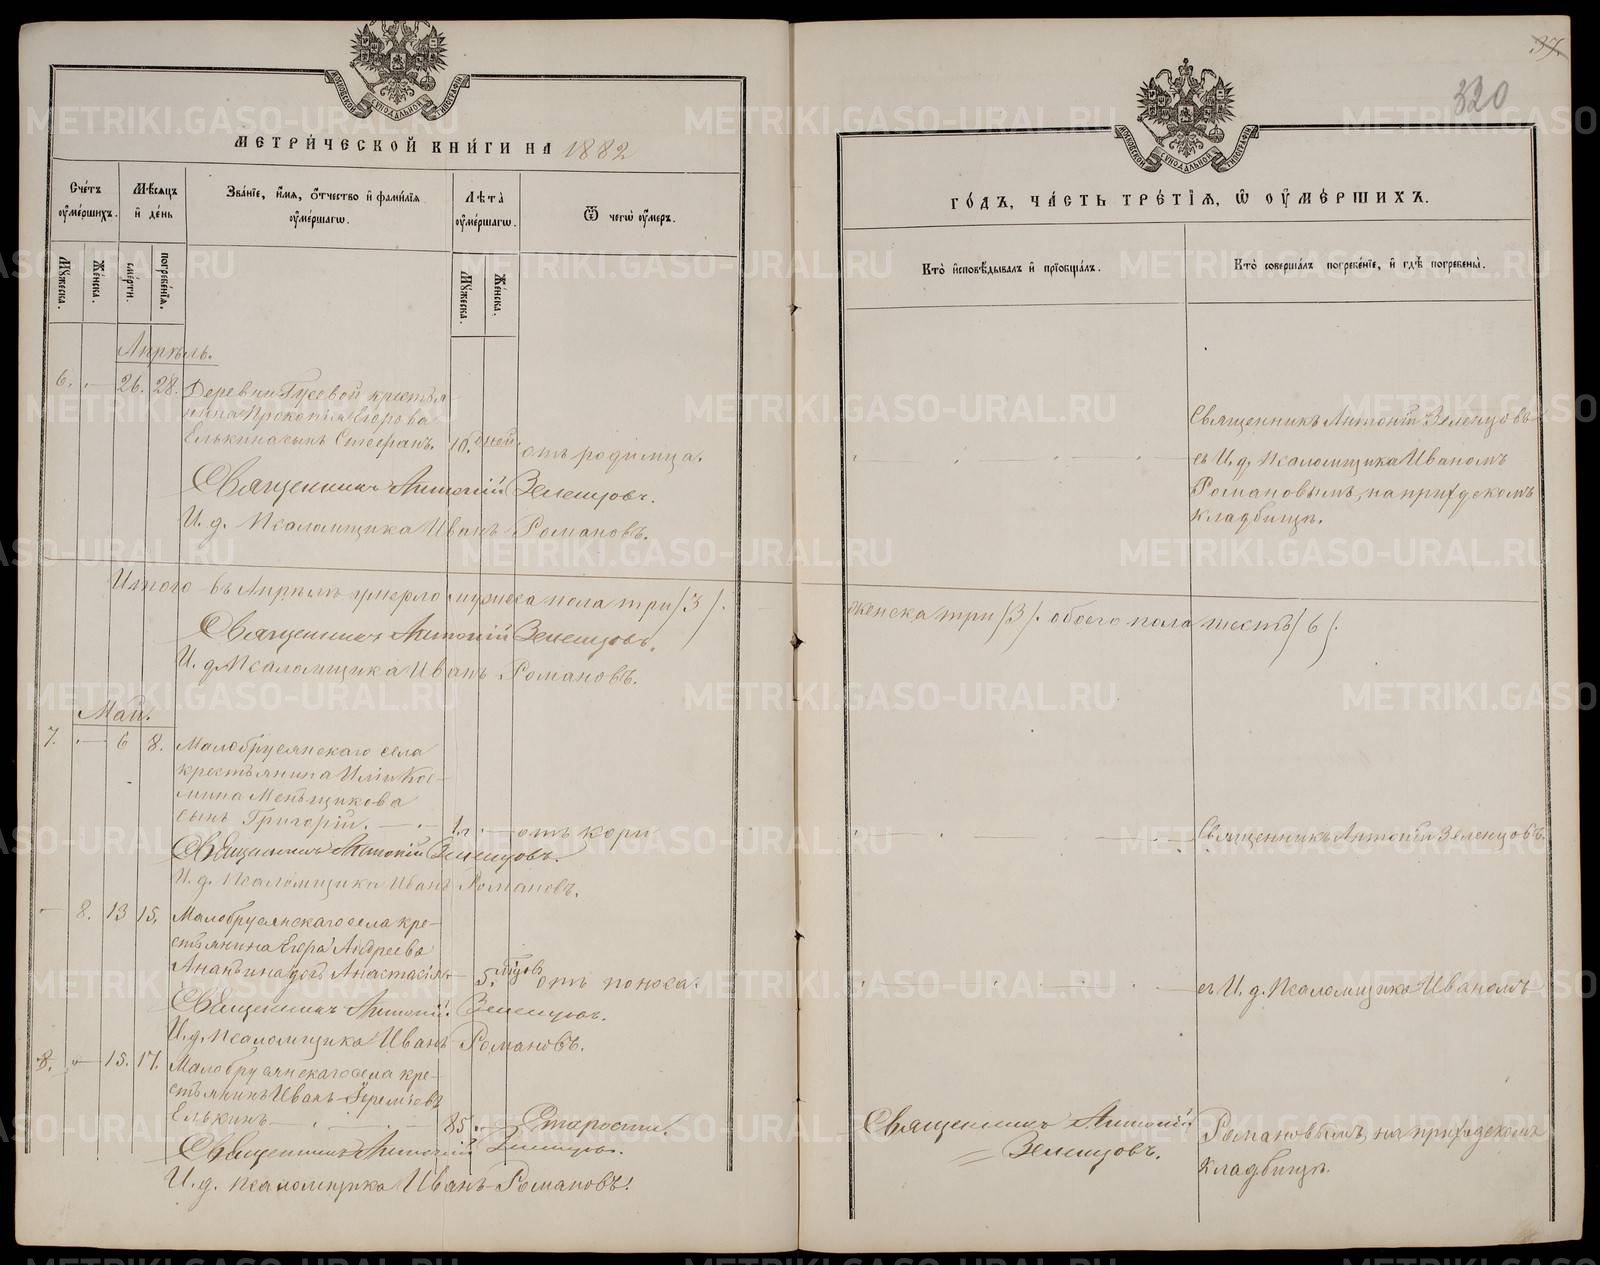 МЕТРИЧЕСКОЙ КНИГИ НА 1882
Счетъ оумершихъ.
Мѣсяцъ и день
Званіе, имя, отчество и фамилія оумершагѡ.
Лѣта оумершагѡ.
Ѿ чегѡ оумеръ.
Мужеска.
Женска.
смерти.
погребенія.
Мужеска.
Женска.
Апрѣль.
6. 26. 28. Деревни Гусевой крестья-
нина Прокопія Егорова
Елькина сынъ Стефанъ. 10. дней. отъ родимца.
Священникъ Антоній Зеленцовъ.
И. д. Псаломщика Иванъ Романовъ.
Итого въ Апрѣлѣ умерло мужеска пола три /3/.
Священникъ Антоній Зеленцовъ.
И. д. Псаломщика Иванъ Романовъ.
Май.
7. 6 8. Малобрусянскаго села
крестьянина Иліи Кос-
мина Меньщикова
сынъ Григорій. 1 г. отъ кори
Священникъ Антоній Зеленцовъ.
И. д. Псаломщика Иванъ Романовъ.
8. 13 15. Малобрусянскаго села кре-
стьянина Егора Андреева
Ананьина дочь Анастасія 5. мѣсцовъ отъ поноса.
Священникъ Антоній Зеленцовъ.
И. д. Псаломщика Иванъ Романовъ.
8. 15. 17. Малобрусянскаго села кре-
стьянинъ Иванъ
Елькинъ 85. Старости.
Священникъ Антоній Зеленцовъ.
И. д. Псаломщика Иванъ Романовъ.
37
320
ГОДЪ, ЧАСТЬ ТРЕТІЯ, Ѡ ОУМЕРШИХЪ.
Кто исповѣдывалъ и пріобщалъ.
Кто совершалъ погребеніе, и гдѣ погребены.
Священникъ Антоній Зеленцовъ
съ И. д. Псаломщика Иваномъ
Романовымъ, на приходскомъ
кладбищѣ.
женска три /3/. обоего пола шесть /6/.
Священникъ Антоній Зеленцовъ
съ И. д. Псаломщика Иваномъ
Романовымъ, на приходскомъ
кладбищѣ.
Священникъ Антоній
Зеленцовъ.
METRIKI.GASO-URAL.RU